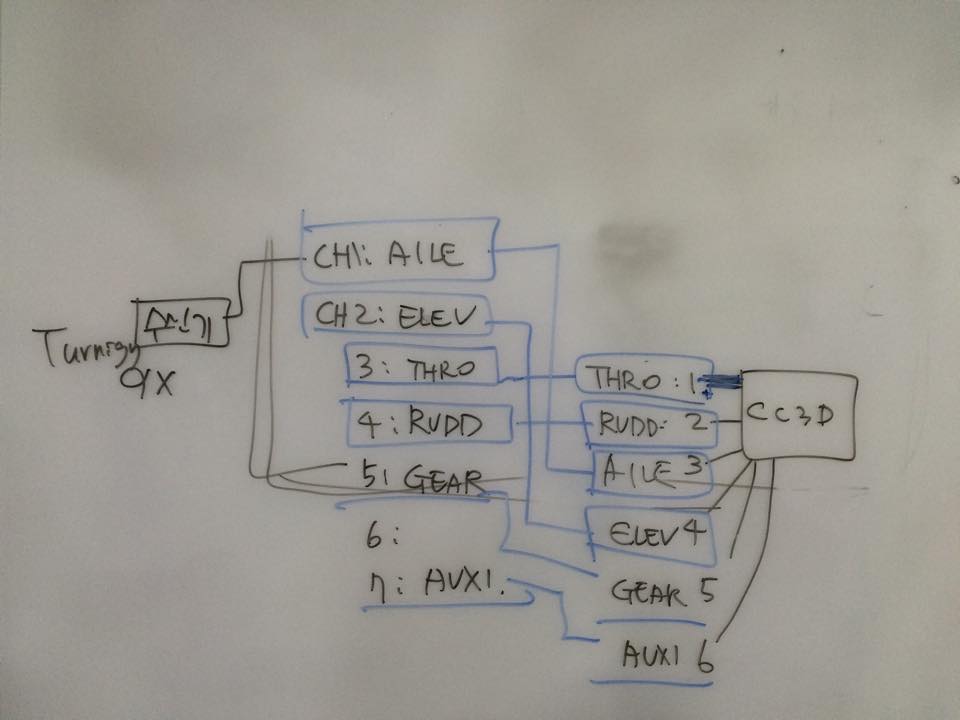 Turnigy
9X
수신기
CH1: AILE
CH2: ELEV
3: THRO
4: RUDD
5: GEAR
6:
7: AUX1.
THRO: 1
RUDD: 2
AILE 3
ELEV 4
GEAR 5
AUX1 6
CC3D